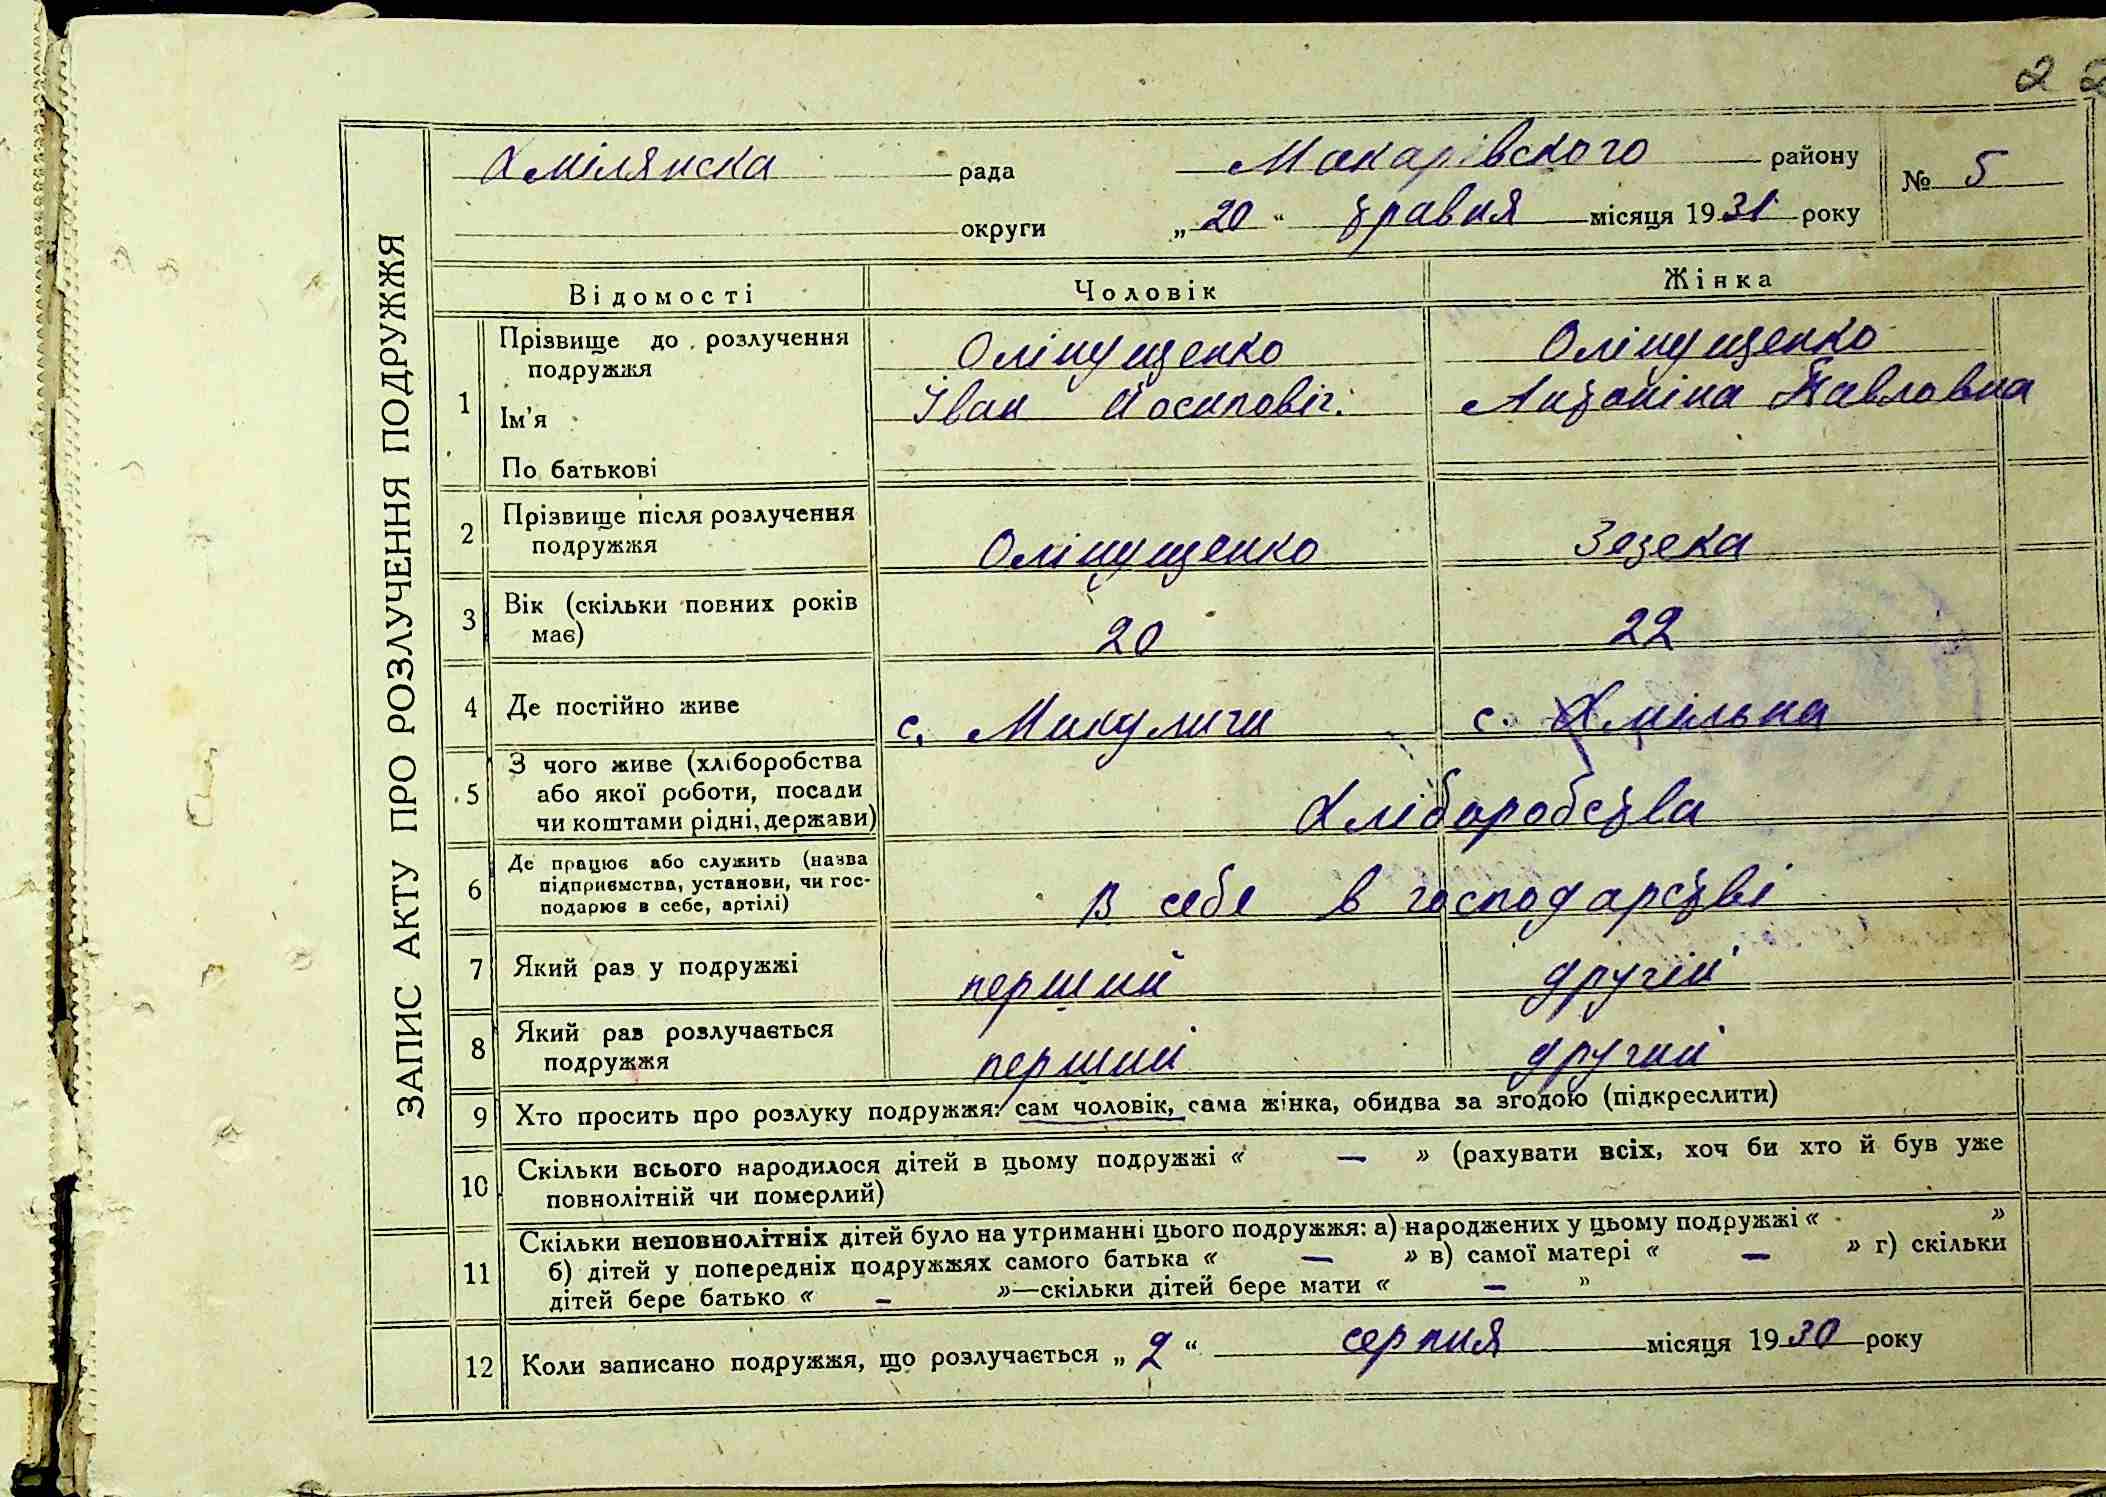 22
Хмілянска рада Макарівского району № 5
округи „20“ травня місяця 1931 року
ЗАПИС АКТУ ПРО РОЗЛУЧЕННЯ ПОДРУЖЖЯ
Відомості Чоловік Жінка
1 Прізвище до розлучення подружжя Оліпущенко Оліпущенко
Ім'я Іван Йосипович. Антоніна Павловна
По батькові
2 Прізвище після розлучення
подружжя Оліпущенко Зезека
3 Вік (скільки повних років
має) 20 22
4 Де постійно живе с. Микуличи с. Хмільна
5 З чого живе (хліборобства
або якої роботи, посади
чи коштами рідні, держави) Хліборобства
6 Де працює або служить (назва
підприємства, установи, чи гос-
подарює в себе, артілі) В себе в господарстві
7 Який раз у подружжі перший другій
8 Який раз розлучається
подружжя перший другий
9 Хто просить про розлуку подружжя: сам чоловік, сама жінка, обидва за згодою (підкреслити)
10 Скільки всього народилося дітей в цьому подружжі « — » (рахувати всіх, хоч би хто й був уже
повнолітній чи померлий)
11 Скільки неповнолітніх дітей було на утриманні цього подружжя: а) народжених у цьому подружжі « »
б) дітей у попередніх подружжях самого батька « — » в) самої матері « — » г) скільки
дітей бере батько « — »—скільки дітей бере мати « — »
12 Коли записано подружжя, що розлучається „2“ серпня місяця 1930 року